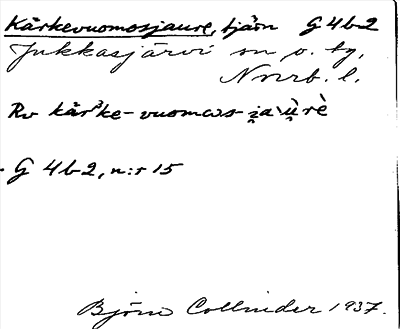 Kårkevuomosjaure, tjärn G 4b2
Jukkasjärvi sn o. tg,
Norrb. l.
Rv kår³ke-vuomɑs-ʒ̯a\ù̯rè
G 4b2, n:r 15
Björn Collinder 1937.